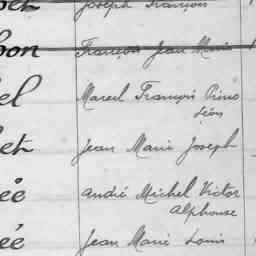 Joseph François
bon François Jean Marie
el Marcel François Pierre
Léon
et Jean Marie Joseph
ée André Michel Victor
Alphonse
ée Jean Marie Louis